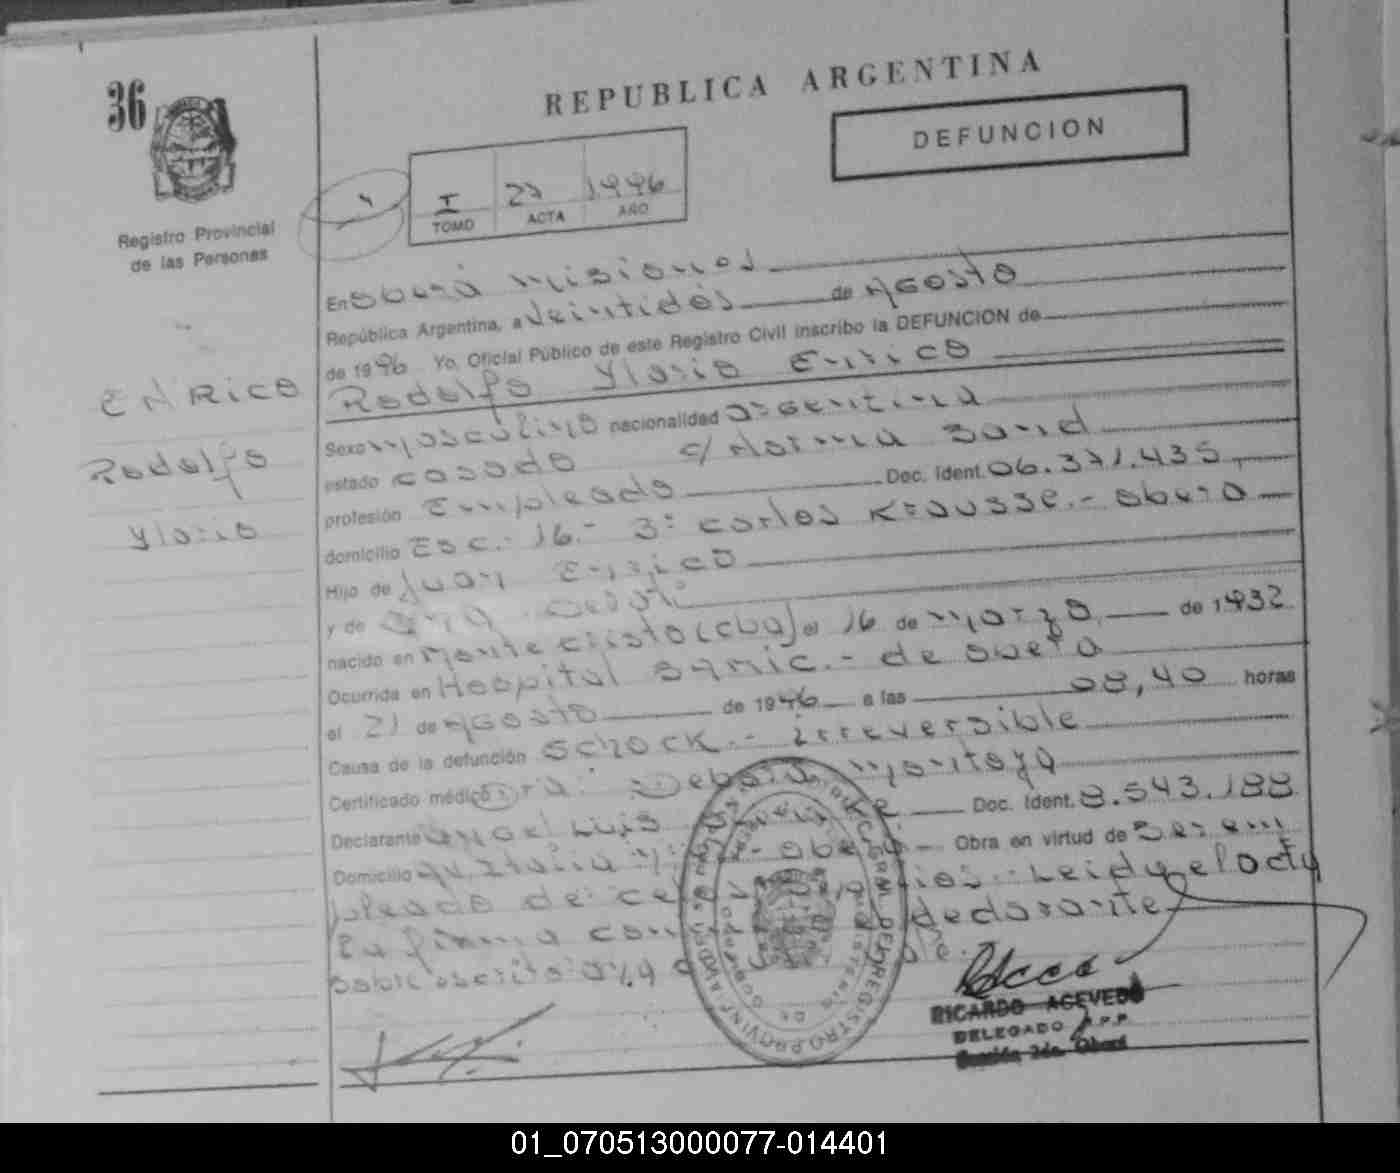 36
REPUBLICA ARGENTINA
DEFUNCION
Registro Provincial
de las Personas
I 27 1996
TOMO ACTA AÑO
En Oberá Misiones
República Argentina, a Veintidós de Agosto
de 1996 Yo, Oficial Público de este Registro Civil inscribo la DEFUNCION de
Rodolfo Ylario Enrico
ENRICO
Rodolfo
Ylario
Sexo Masculino nacionalidad argentina
estado casado c/ Norma Band
profesión Empleado Doc. Ident. 06.371.435
domicilio Esc. 16.- 3° Carlos Krausse.- Oberá
Hijo de Juan Enrico
y de
nacido en Monte Cristo (cba) el 16 de Marzo de 1932
Ocurrida en Hospital Samic.- de Oberá
el 21 de Agosto de 1996 a las 08,40 horas
Causa de la defunción SCHOCK.- irreversible
Certificado médico Dra. Debora Montoya
Declarante Angel Luis Doc. Ident. 8.543.188
Domicilio av. Italia Oberá Obra en virtud de ser em
pleado de: Leida el acta
la firma con declarante
RICARDO ACEVEDO
DELEGADO R.P.P
Sección 2da. Oberá
01_070513000077-014401